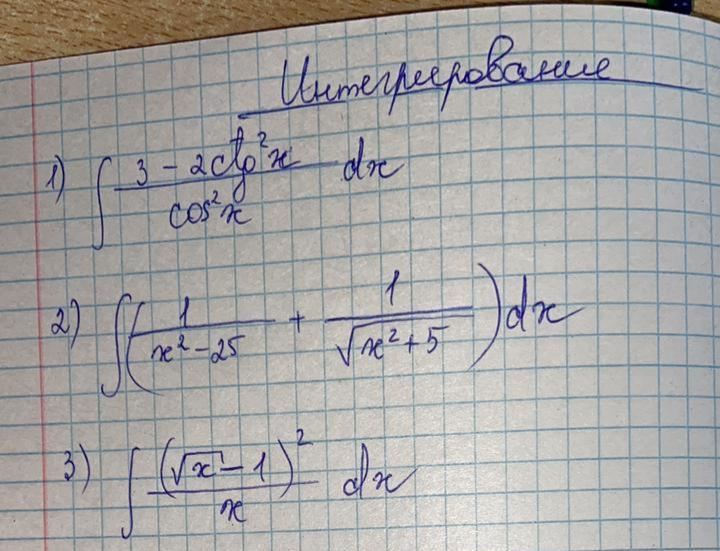 Интегрирование
1) ∫ (3 - 2ctg²x)/(cos²x) dx
2) ∫(1/(x² - 25) + 1/√(x² + 5))dx
3) ∫ (√x - 1)²/x dx